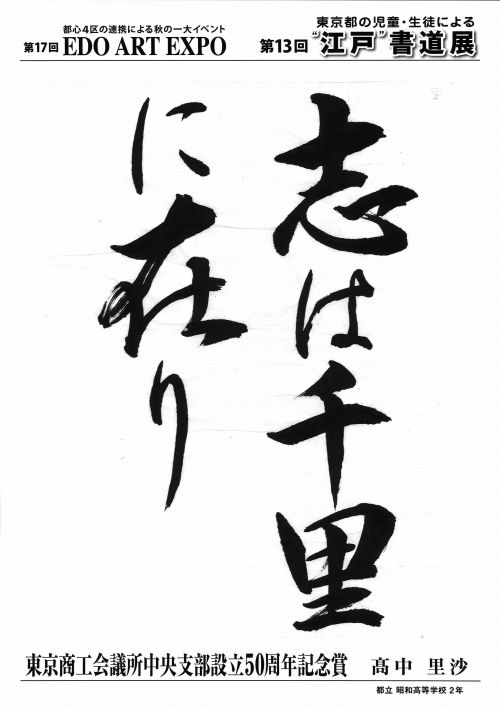 都心4区の連携による秋の一大イベント
第17回 EDO ART EXPO
東京都の児童・生徒による
第13回 “江戸”書道展
志は千里
に在り
東京商工会議所中央支部設立50周年記念賞 髙中 里沙
都立 昭和高等学校 2年